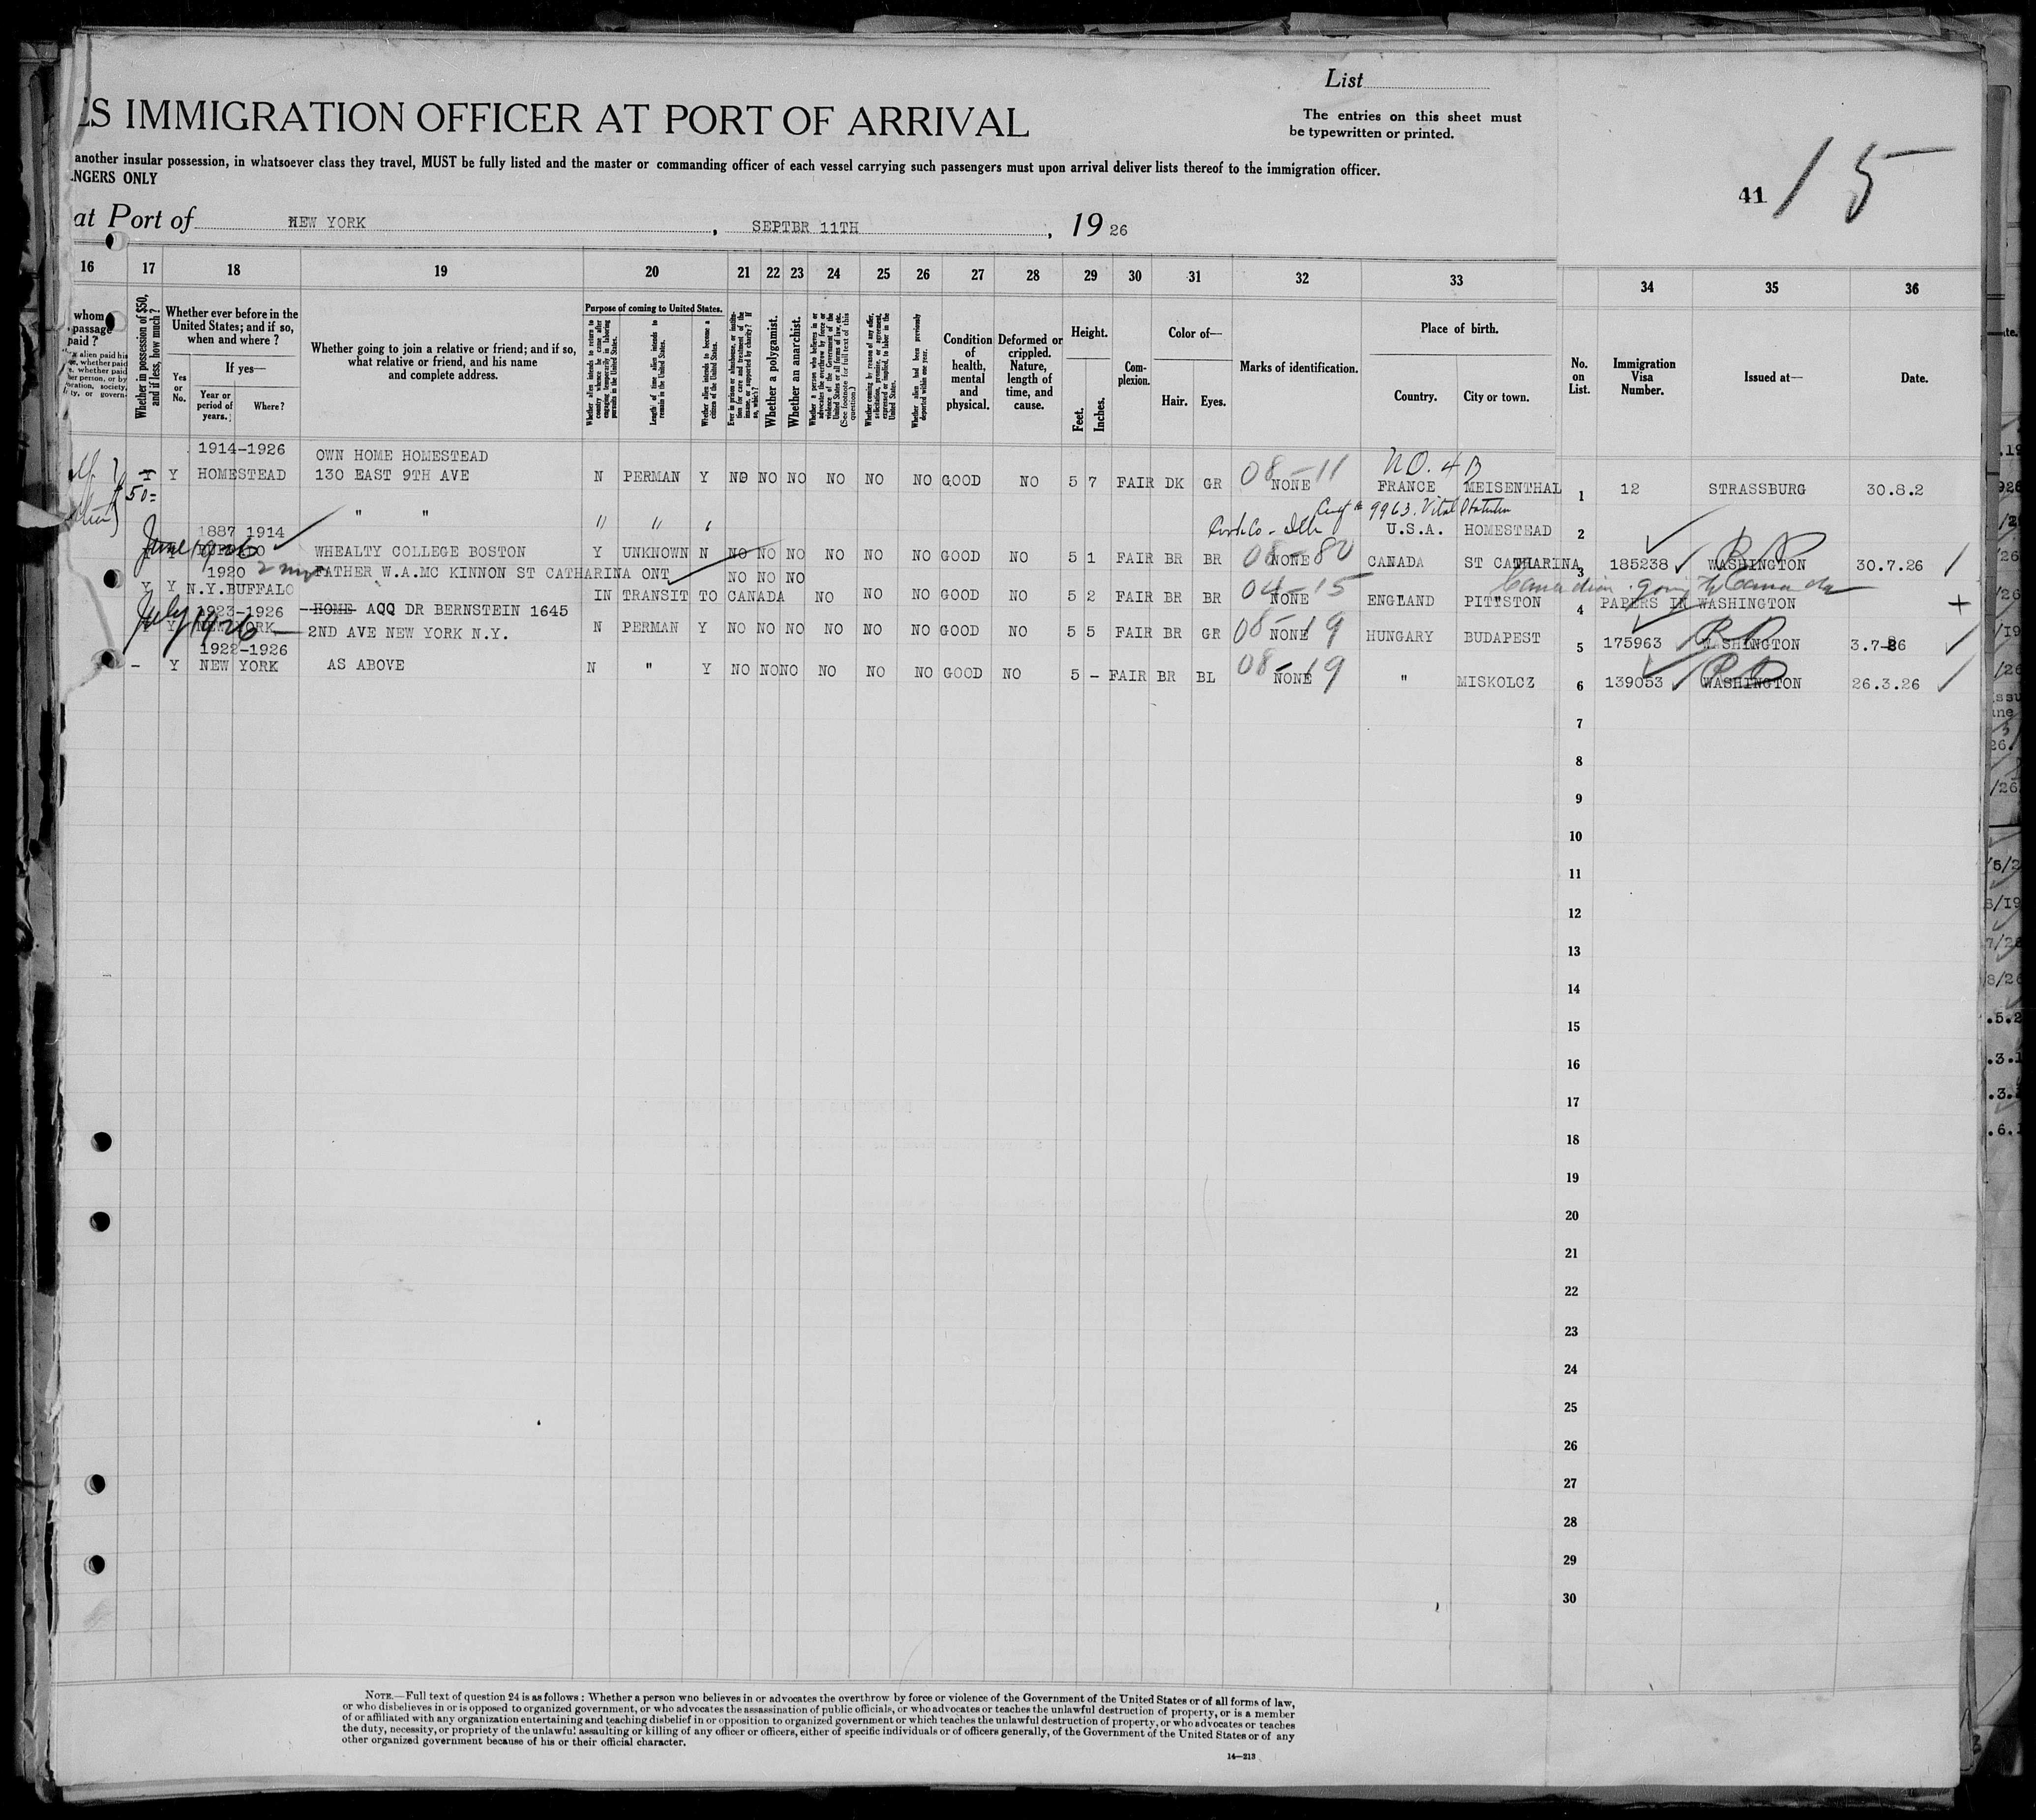 List
ES IMMIGRATION OFFICER AT PORT OF ARRIVAL
The entries on this sheet must
be typewritten or printed.
another insular possession, in whatsoever class they travel, MUST be fully listed and the master or commanding officer of each vessel carrying such passengers must upon arrival deliver lists thereof to the immigration officer.
NGERS ONLY
41 15
at Port of NEW YORK, SEPTBR 11TH, 19 26
16 17 18 19 20 21 22 23 24 25 26 27 28 29 30 31 32 33 34 35 36
whom passage paid?
Whether in possession of $50, and if less, how much?
Whether ever before in the United States; and if so, when and where?
Yes or No.
If yes—
Year or period of years.
Where?
Whether going to join a relative or friend; and if so, what relative or friend, and his name and complete address.
Purpose of coming to United States.
Whether alien intends to return to country whence he came after engaging temporarily in laboring pursuits in the United States.
Length of time alien intends to remain in the United States.
Whether alien intends to become a citizen of the United States.
Ever in prison or almshouse, or institution for care and treatment of the insane, or supported by charity? If so, which?
Whether a polygamist.
Whether an anarchist.
Whether a person who believes in or advocates the overthrow by force or violence of the Government of the United States or all forms of law, etc. (See footnote for full text of this question.)
Whether coming by reason of any offer, solicitation, promise, or agreement, expressed or implied, to labor in the United States.
Whether alien had been previously deported within one year.
Condition of health, mental and physical.
Deformed or crippled. Nature, length of time, and cause.
Height.
Feet.
Inches.
Complexion.
Color of—
Hair.
Eyes.
Marks of identification.
Place of birth.
Country.
City or town.
No. on List.
Immigration Visa Number.
Issued at—
Date.
1914-1926 OWN HOME HOMESTEAD
50- Y HOMESTEAD 130 EAST 9TH AVE N PERMAN Y NO NO NO NO NO NO GOOD NO 5 7 FAIR DK GR NONE 08-11 FRANCE MEISENTHAL 1 12 STRASSBURG 30.8.2
" " " " U.S.A. HOMESTEAD 2
9963. Vital
1887 1914
June 1926 BUFFALO WHEALTY COLLEGE BOSTON Y UNKNOWN N NO NO NO NO NO NO GOOD NO 5 1 FAIR BR BR NONE 08-80 CANADA ST CATHARINA 3 185238 WASHINGTON 30.7.26
1920 FATHER W.A.MC KINNON ST CATHARINA ONT NO NO NO
Y Y N.Y.BUFFALO IN TRANSIT TO CANADA NO NO NO GOOD NO 5 2 FAIR BR BR NONE 04-15 ENGLAND PITTSTON 4 PAPERS IN WASHINGTON
Canadian going to Canada
1923-1926 HOME AQQ DR BERNSTEIN 1645
July 1926 Y Y NEW YORK 2ND AVE NEW YORK N.Y. N PERMAN Y NO NO NO NO NO NO GOOD NO 5 5 FAIR BR GR NONE 08-19 HUNGARY BUDAPEST 5 175963 WASHINGTON 3.7-26
1922-1926
- Y NEW YORK AS ABOVE N " Y NO NO NO NO NO NO GOOD NO 5 - FAIR BR BL NONE 08-19 " MISKOLCZ 6 139053 WASHINGTON 26.3.26
7
8
9
10
11
12
13
14
15
16
17
18
19
20
21
22
23
24
25
26
27
28
29
30
NOTE.—Full text of question 24 is as follows: Whether a person who believes in or advocates the overthrow by force or violence of the Government of the United States or of all forms of law,
or who disbelieves in or is opposed to organized government, or who advocates the assassination of public officials, or who advocates or teaches the unlawful destruction of property, or is a member
of or affiliated with any organization entertaining and teaching disbelief in or opposition to organized government or which teaches the unlawful destruction of property, or who advocates or teaches
the duty, necessity, or propriety of the unlawful assaulting or killing of any officer or officers, either of specific individuals or of officers generally, of the Government of the United States or of any
other organized government because of his or their official character.
14—213